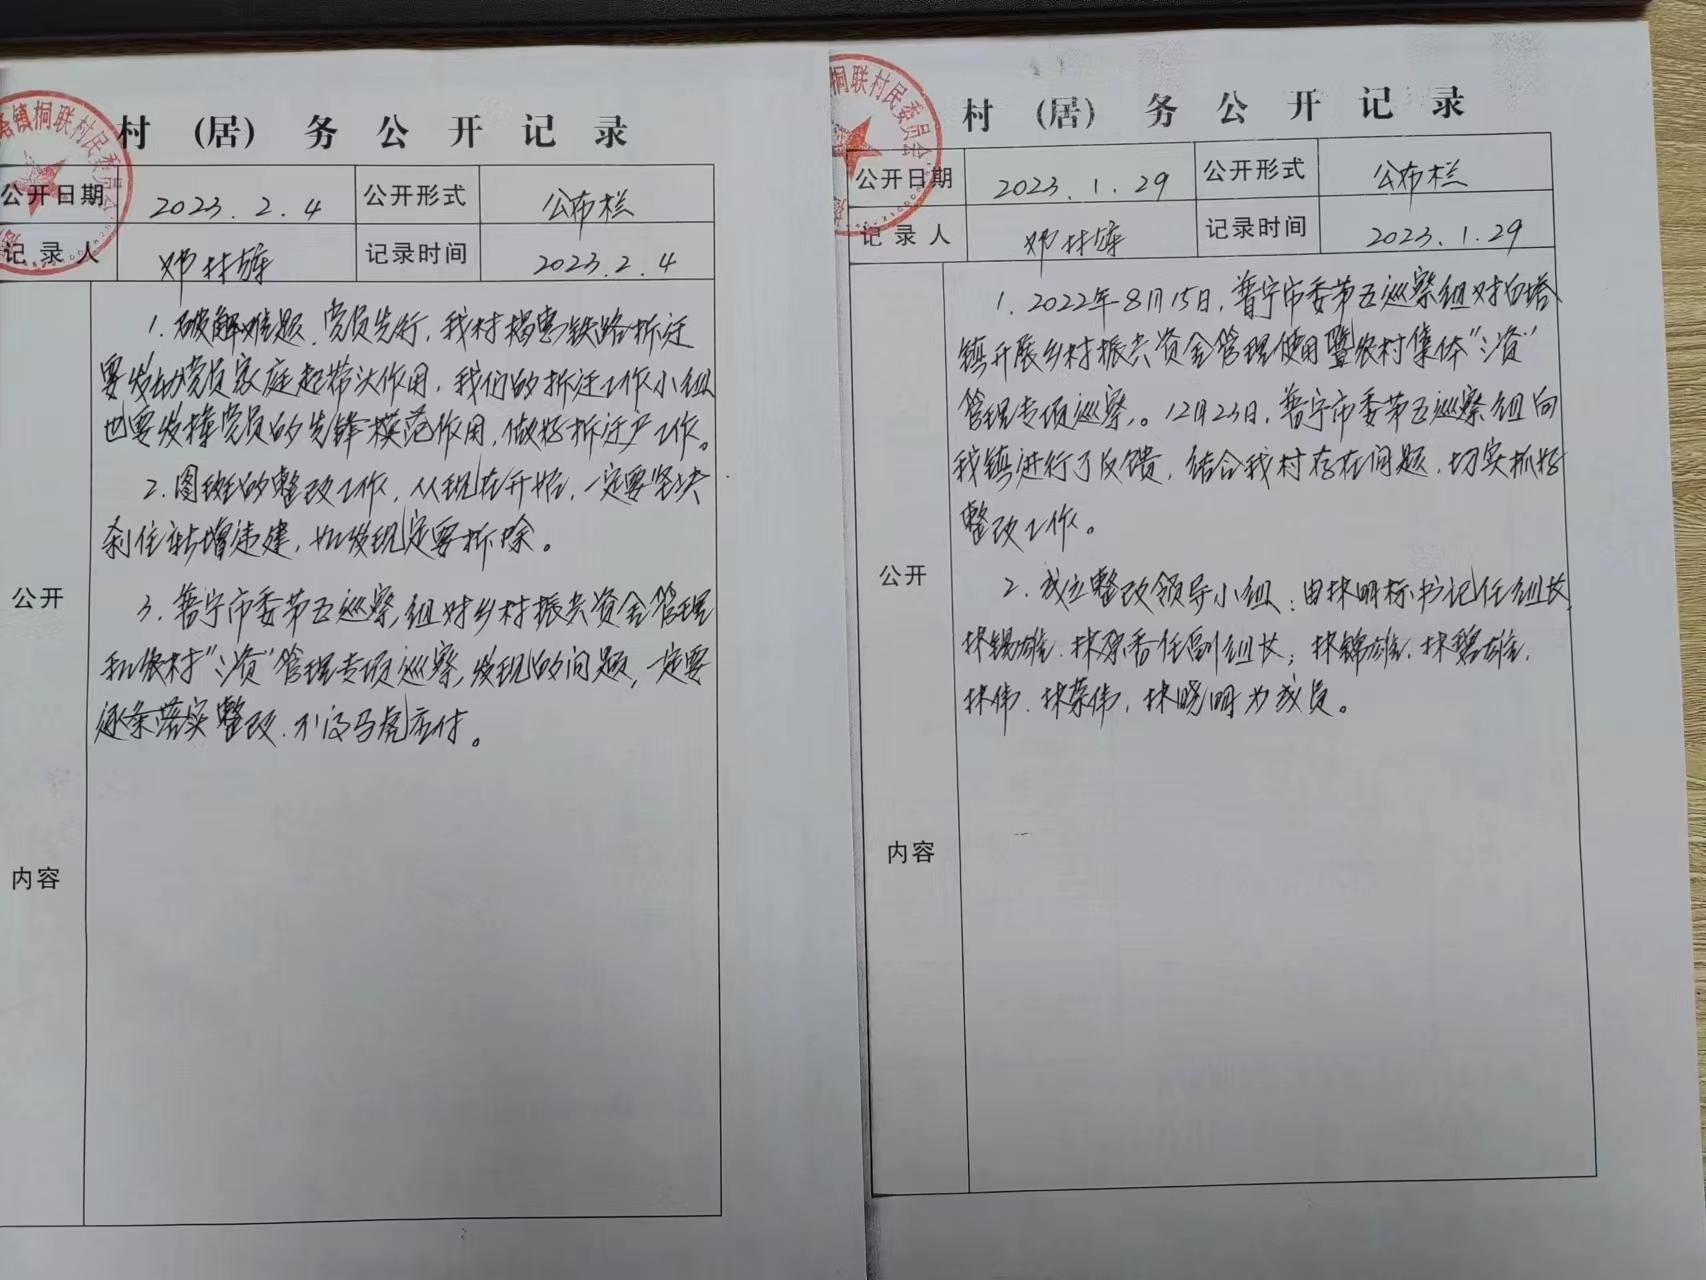 塔镇桐联村民委员
村（居）务公开记录
公开日期 2023.2.4 公开形式 公布栏
记录人 邓林雄 记录时间 2023.2.4
公开
内容
1.破解难题,党员先行,我村揭惠铁路拆迁
要发动党员家庭起带头作用,我们的拆迁工作小组
也要发挥党员的先锋模范作用,做好拆迁户工作。
2.图斑的整改工作,从现在开始,一定要坚决
刹住新增违建,如发现定要拆除。
3.普宁市委第五巡察组对乡村振兴资金管理
和农村"三资"管理专项巡察,发现的问题,一定要
逐条落实整改.不设马虎应付。
桐联村民委员会
村（居）务公开记录
公开日期 2023.1.29 公开形式 公布栏
记录人 邓林雄 记录时间 2023.1.29
公开
内容
1.2022年8月15日,普宁市委第五巡察组对白塔
镇开展乡村振兴资金管理使用暨农村集体"三资"
管理专项巡察,。12月23日,普宁市委第五巡察组向
我镇进行了反馈,结合我村存在问题.切实抓好
整改工作。
2.成立整改领导小组:由林明标书记任组长,
林锡雄.林 香任副组长;林锦雄.林碧雄.
林伟.林荣伟.林晓明为成员。